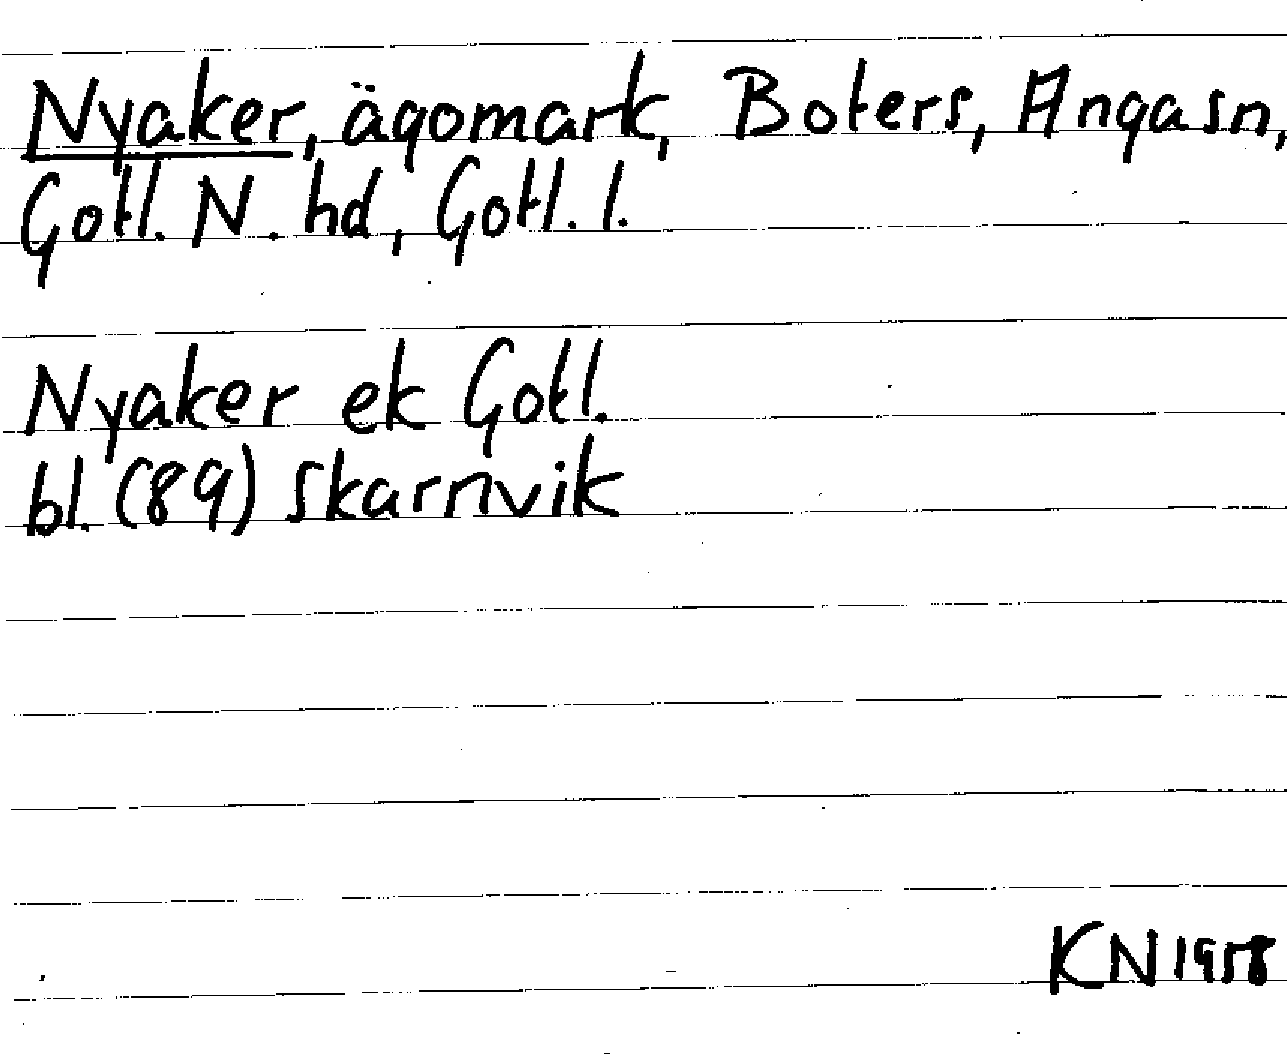 Nyaker, ägomark, Boters, Angasn,
Gotl. N. hd, Gotl. l.
Nyaker ek Gotl.
bl. (89) Skarnvik
KN 1958